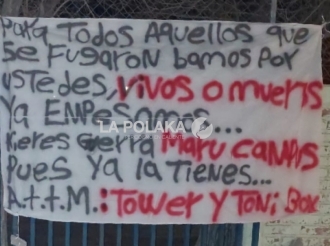 PARA TODOS AQUELLOS QUE
SE FUGARON BAMOS POR
USTEDES, VIVOS O MUERTS
YA EMPESAMOS...
LA POLAKA
KIERES GERRA MARU CAMPUS
PUES YA LA TIENES...
A.T.T.M.: TOWER Y TONI BOX